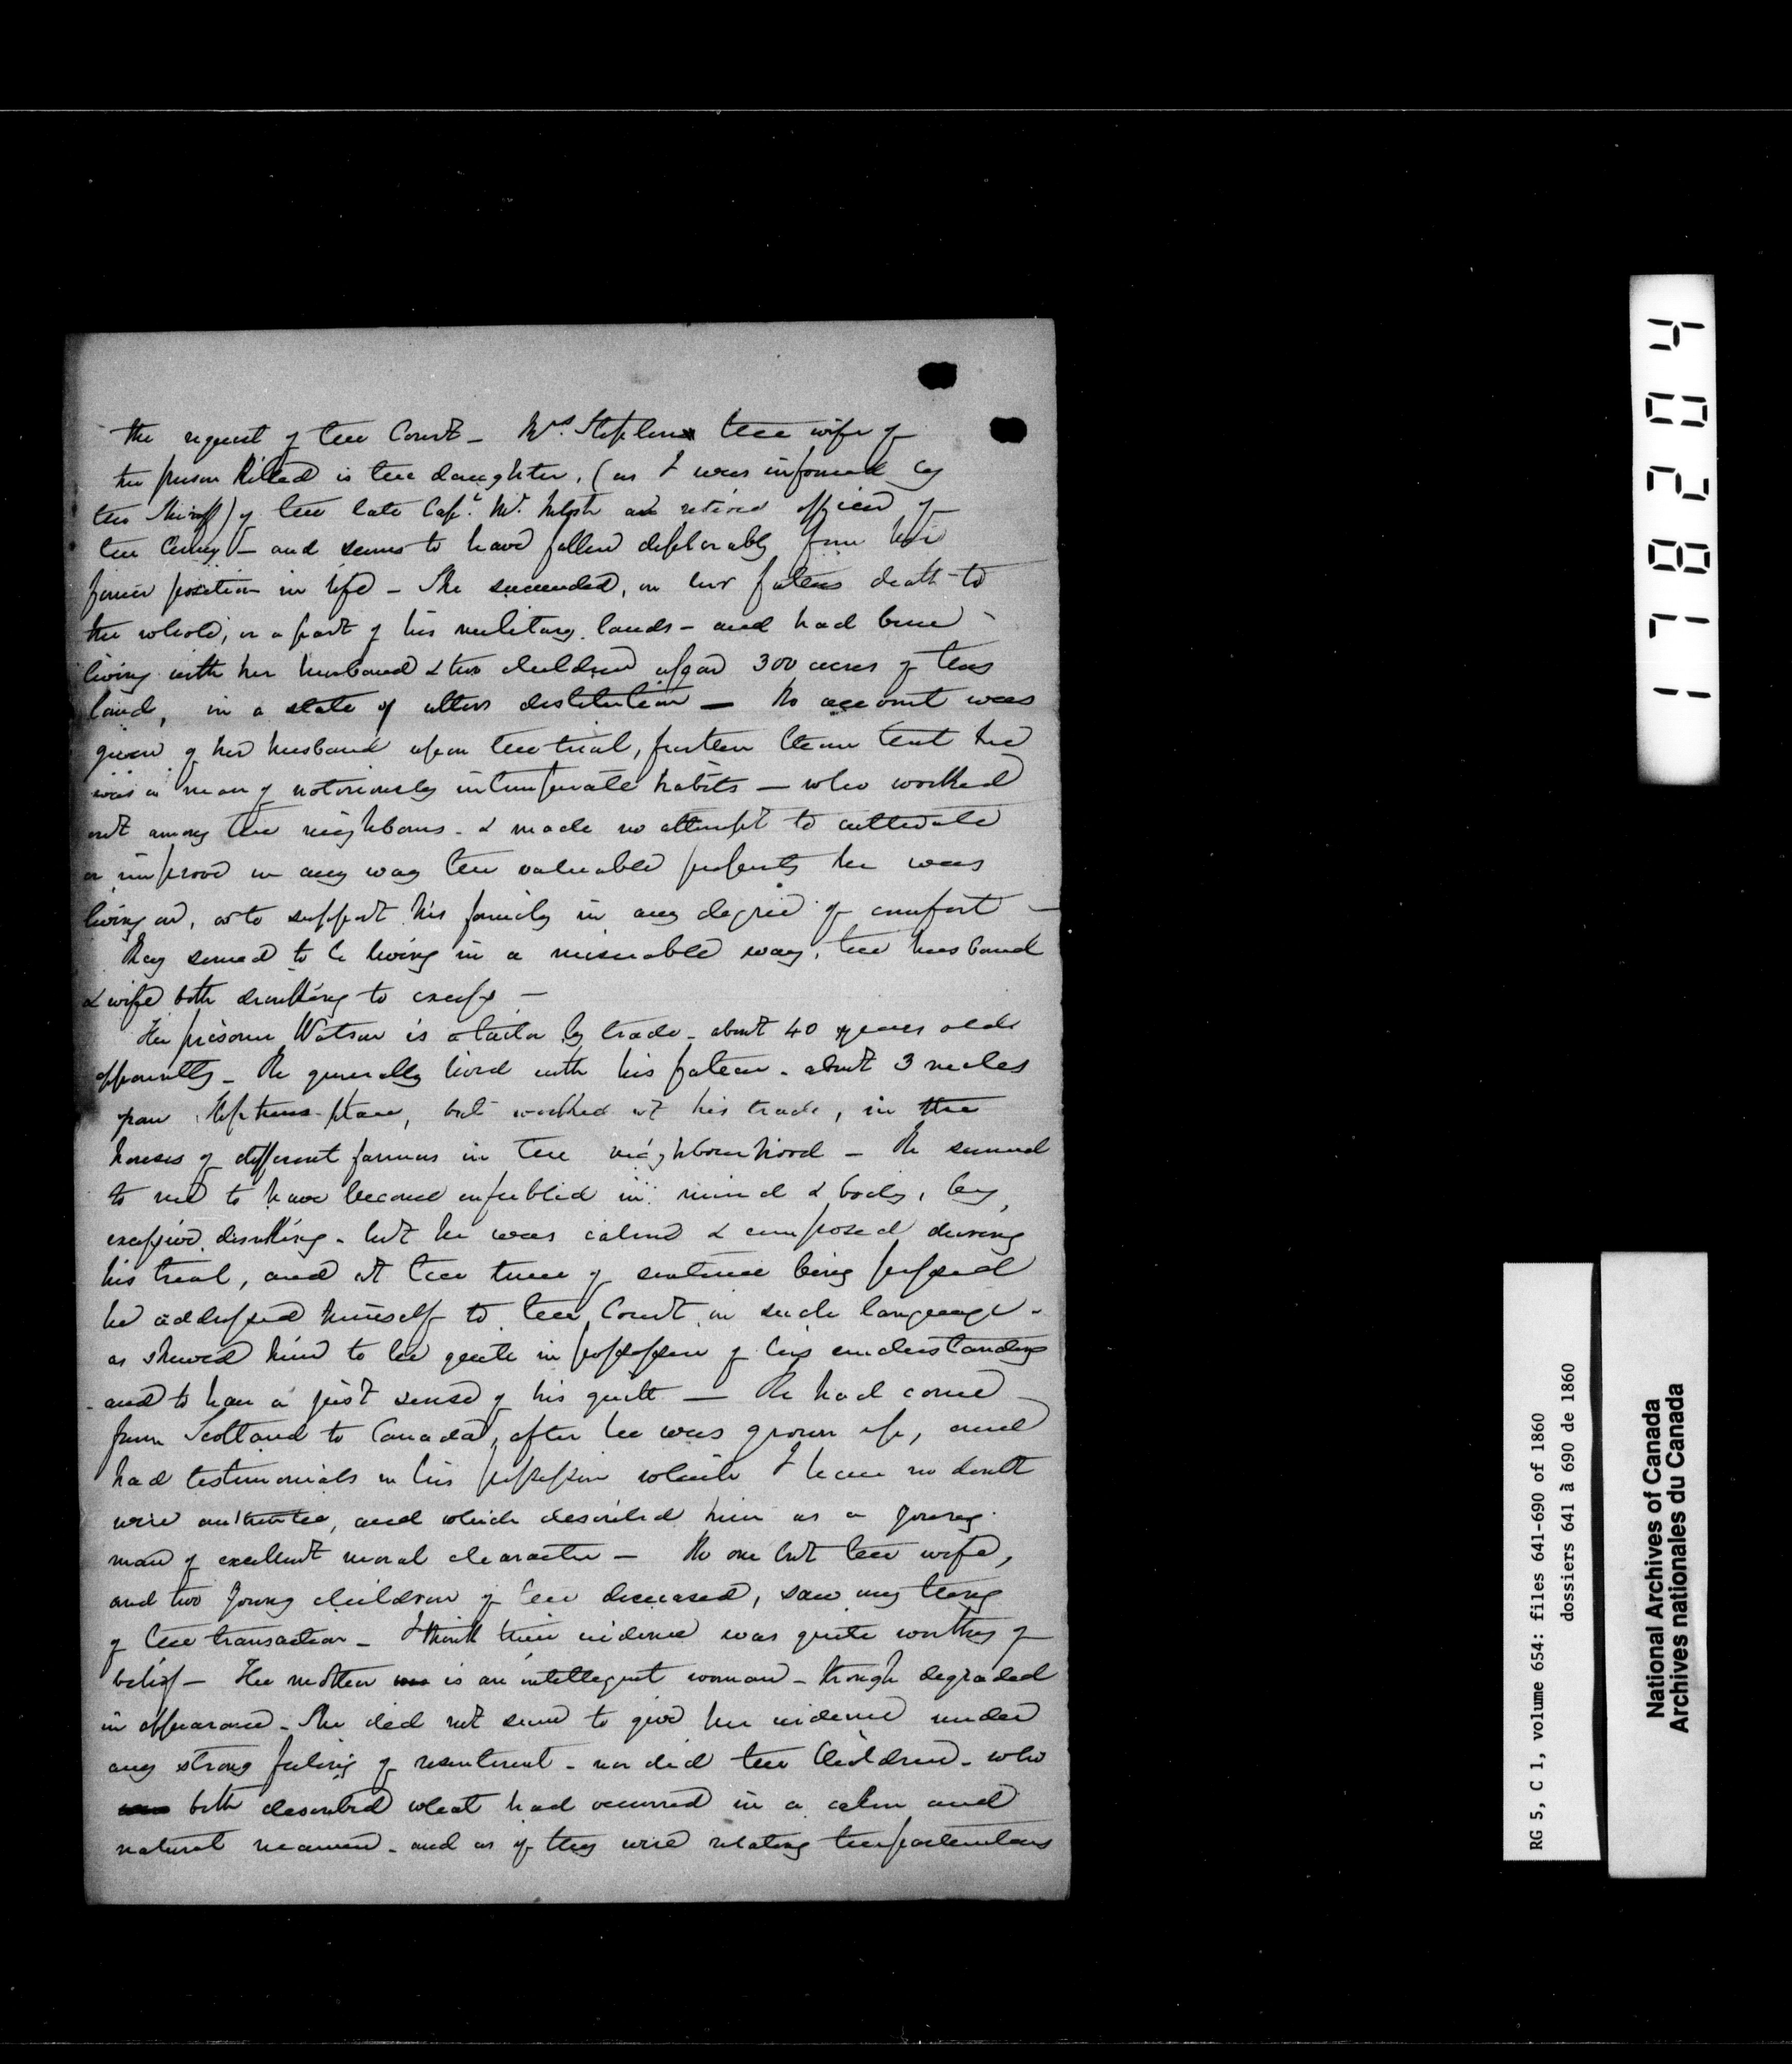 the request of the Court – Mrs. Stephens the wife of
the person killed is the daughter, (as I was informed by
the Sheriff) of the late Capt. Mc a retired officer of
the Army – and seems to have fallen deplorably from her
former position in life – She succeeded, on her fathers death to
the whole, or a part of his military lands – and had been
living with her husband & two children upon 300 acres of this
land, in a state of utter destitution – No account was
given of her husband upon the trial, further than that he
was a man of notoriously intemperate habits – who worked
out among the neighbours – & made no attempt to cultivate
or improve in any way the valuable property he was
living on, or to support his family in any degree of comfort –
They seemed to be living in a miserable way, the husband
& wife both drinking to excess –
The prisoner Watson is a tailor by trade – about 40 years old
apparently – He generally lived with his father – about 3 miles
from Stephens place, but worked at his trade, in the
houses of different farmers in the neighbourhood – He seemed
to me to have become enfeebled in mind & body, by
excessive drinking – but he was calm & composed during
his trial, and at the time of sentence being passed
he addressed himself to the Court in such language –
as shewed him to be quite in possession of his understanding
and to have a just sense of his guilt – He had come
from Scotland to Canada, after he was grown up, and
had testimonials in his possession which I have no doubt
were authentic, and which described him as a young
man of excellent moral character – No one but the wife,
and two young children of the deceased, saw any thing
of the transaction – I think their evidence was quite worthy of
belief – The mother is an intelligent woman – though degraded
in appearance – She did not seem to give her evidence under
any strong feeling of resentment – nor did the Children – who
both described what had occurred in a calm and
natural manner – and as if they were relating the particulars
171820 4
RG 5, C 1, volume 654: files 641-690 of 1860
dossiers 641 à 690 de 1860
National Archives of Canada
Archives nationales du Canada